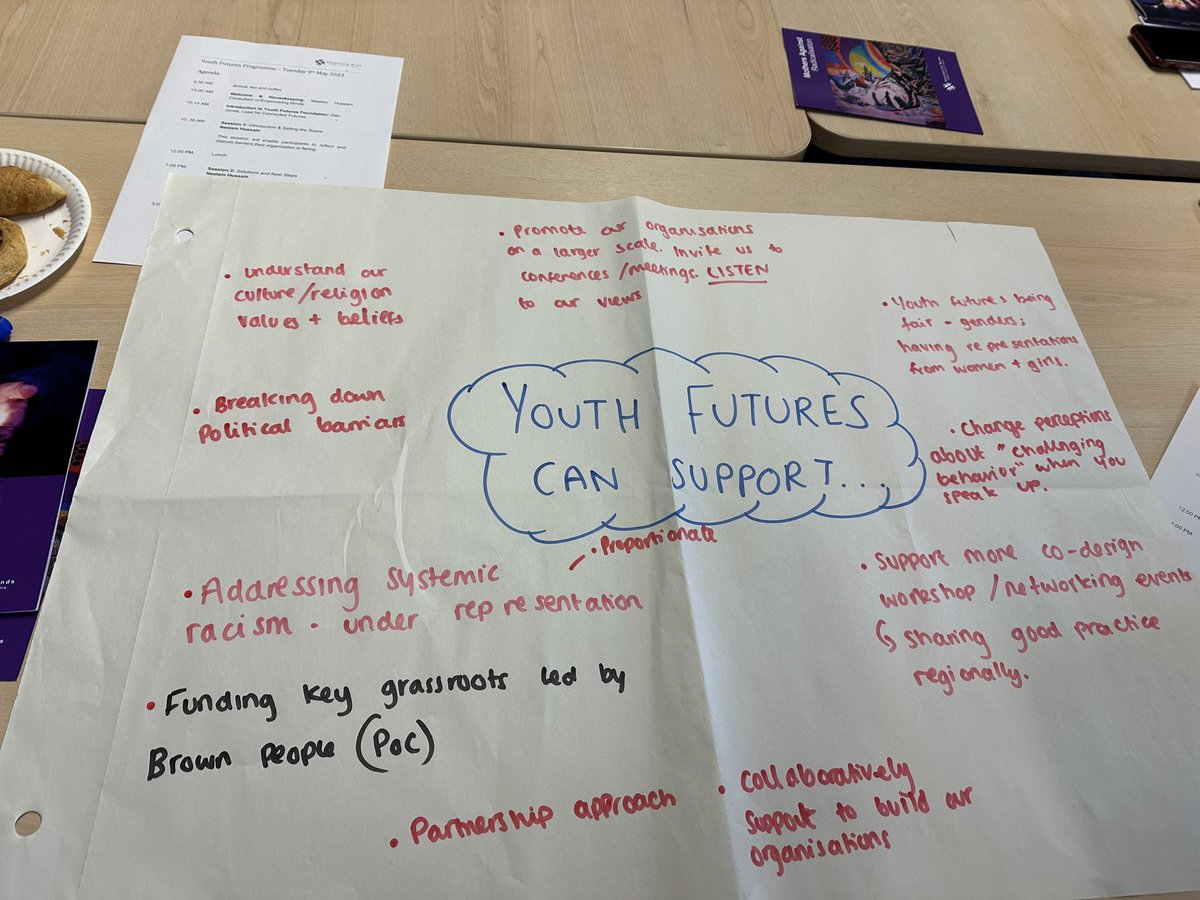 Youth Futures Programme – Tuesday 9th May 2023
Agenda
9:30 AM
Arrival, tea and coffee
10.00 AM
Welcome & Housekeeping: Neelam Hussain,
Consultant of Empowering Minds.
10.10 AM
Introduction to Youth Futures Foundation: Dan
Jones, Lead for Connected Futures.
10. 30 AM
Session 1: Introduction & Setting the Scene
Neelam Hussain
This session will enable participants to reflect and
discuss barriers their organisation is facing.
12.00 PM
Lunch
1:00 PM
Session 2: Solutions and Next Steps
Neelam Hussain
Mothers Against
Radicalisation
• Promote our organisations
on a larger scale. Invite us to
conferences/meetings. LISTEN
to our views
• understand our
culture/religion
values + beliefs
• Youth futures being
fair - genders;
having representations
from women + girls.
• Breaking down
Political barriars
YOUTH FUTURES
CAN SUPPORT...
• Change perceptions
about "challnging
behavior" when you
speak up.
• Proportionate
• Addressing systemic
racism. under representation
• Support more co-design
workshop/networking events
↳ sharing good practice
regionally.
• Funding key grassroots led by
Brown people (PoC)
• Partnership approach
• Collaboratively
support to build our
organisations
12.00 PM
1:00 PM